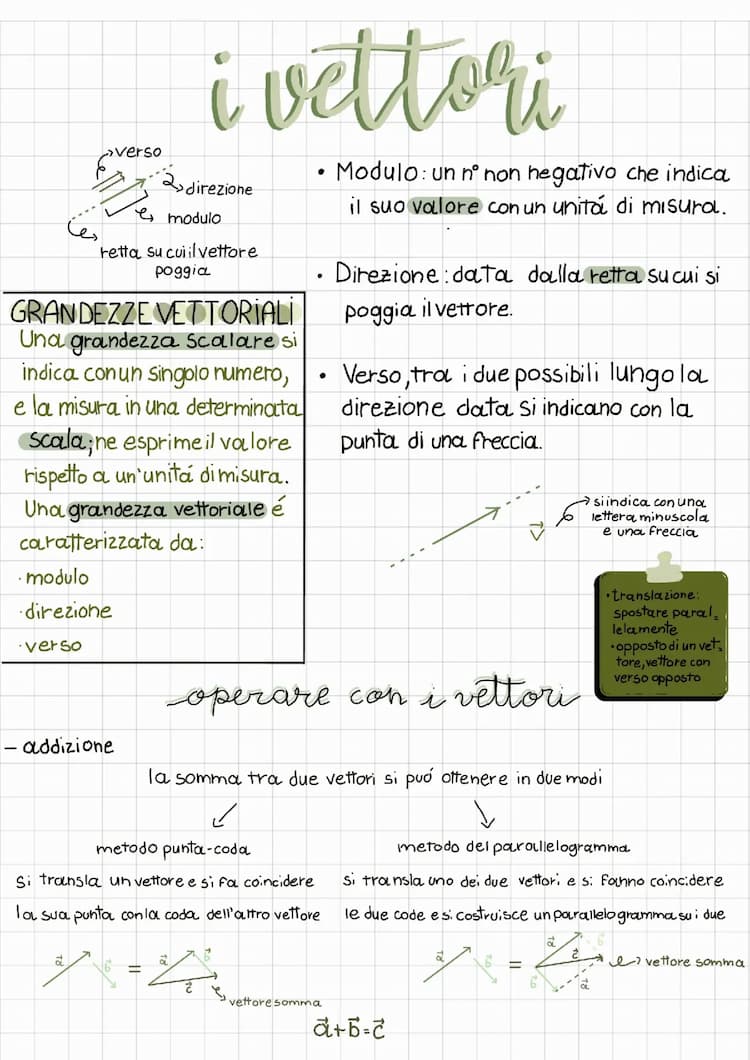 i vettori
verso
direzione
modulo
retta su cui il vettore
poggia
• Modulo: un n° non negativo che indica
il suo valore con un unitá di misura.
• Direzione: data dalla retta su cui si
poggia il vettore.
• Verso, tra i due possibili lungo la
direzione data si indicano con la
punta di una freccia.
GRANDEZZE VETTORIALI
Una grandezza scalare si
indica con un singolo numero,
e la misura in una determinata
scala; ne esprime il valore
rispetto a un'unitá di misura.
Una grandezza vettoriale é
caratterizzata da:
· modulo
· direzione
· verso
v⃗
si indica con una
lettera minuscola
e una freccia
• translazione:
spostare paral=
lelamente
• opposto di un vet=
tore, vettore con
verso opposto
operare con i vettori
– addizione
la somma tra due vettori si puó ottenere in due modi
metodo punta-coda
si transla un vettore e si fa coincidere
la sua punta con la coda dell'altro vettore
a⃗ b⃗ = a⃗ b⃗ c⃗
vettore somma
metodo del parallelogramma
si transla uno dei due vettori e si fanno coincidere
le due code e si costruisce un parallelogramma su i due
a⃗ b⃗ = a⃗ b⃗ c⃗ b⃗ a⃗
vettore somma
a⃗+b⃗=c⃗